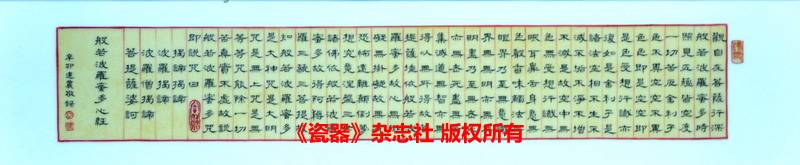 觀自在菩薩行深
般若波羅蜜多時
照見五蘊皆空度
一切苦厄舍利子
色不異空空不異
色色即是空空即
是色受想行識亦
復如是舍利子是
諸法空相不生不
滅不垢不淨不增
不減是故空中無
色無受想行識無
眼耳鼻舌身意無
色聲香味觸法無
眼界乃至無意識
界無無明亦無無
明盡乃至無老死
亦無老死盡無苦
集滅道無智亦無
得以無所得故菩
提薩埵依般若波
羅蜜多故心無
礙無掛礙故無有
恐怖遠離顛倒夢
想究竟涅槃三世
諸佛依般若波羅
蜜多故得阿耨多
羅三藐三菩提故
知般若波羅蜜多
是大神咒是大明
咒是無上咒是無
等等咒能除一切
苦真實不虛故說
般若波羅蜜多咒
即說咒曰
揭諦揭諦
波羅揭諦
波羅僧揭諦
菩提薩婆訶
般若波羅蜜多心經
辛卯連農敬錄
《瓷器》杂志社 版权所有